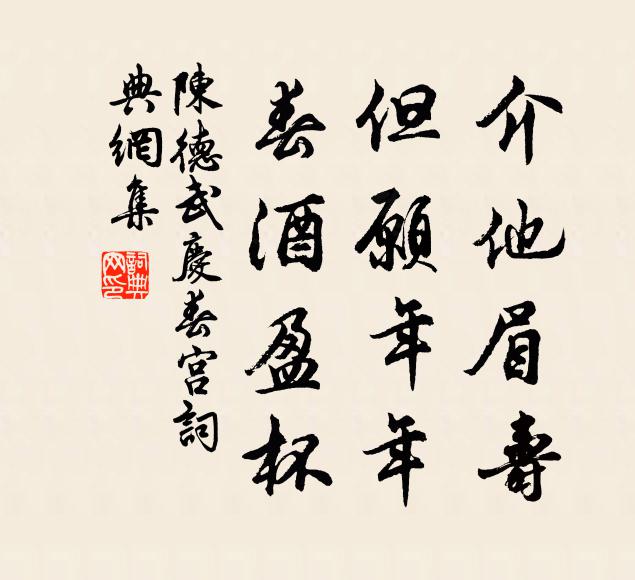 介他眉壽
但願年年
春酒盈杯
陳德武慶春宮詞
典網集
詞典网印